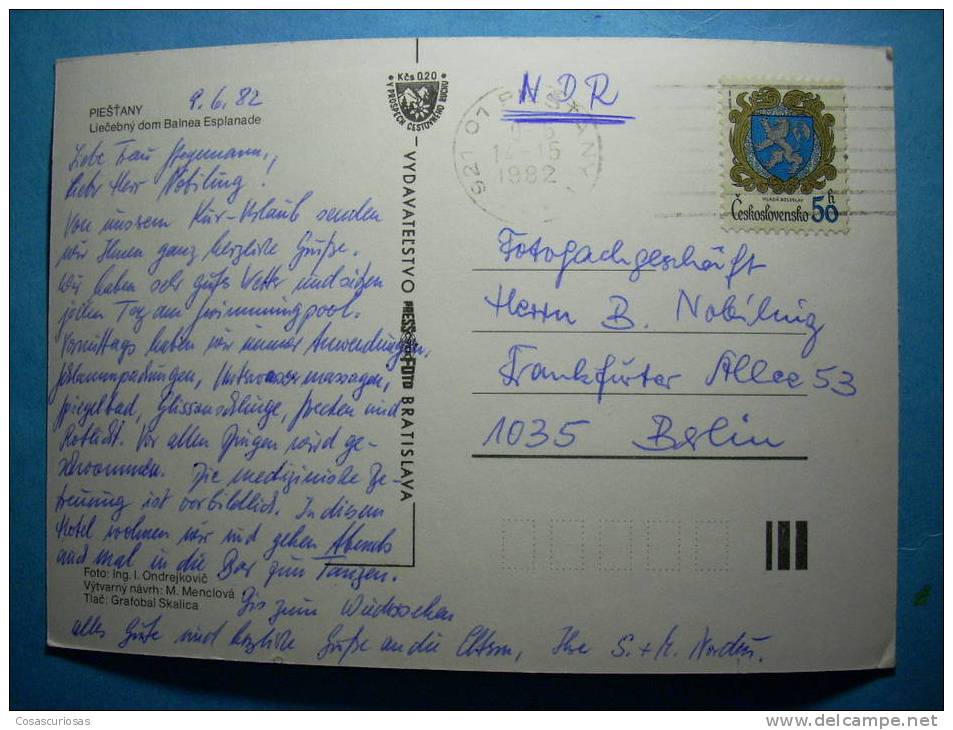 PIEŠŤANY
Liečebný dom Balnea Esplanade
9.6.82
Liebe Frau
lieber Herr Nobiling!
Von unserem Kur-Urlaub senden
wir Ihnen ganz herzliche Grüße.
Wir haben sehr gutes Wetter und sitzen
jeden Tag am Swimmingpool.
Vormittags haben wir immer Anwendungen,
Schlammpackungen, Unterwassermassagen,
Spiegelbad, und
Rotlicht. Vor allen Dingen wird ge-
schwommen. Die medizinische Be-
treuung ist vorbildlich. In diesem
Hotel wohnen wir und gehen Abends
auch mal in die Bar zum Tanzen.
Bis zum Wiedersehen
alles Gute und herzliche Grüße an die Eltern, Ihre S. + M.
Foto: Ing. I. Ondrejkovič
Výtvarný návrh: M. Menclová
Tlač: Grafobal Skalica
Kčs 0.20
V PROSPECH CESTOVNÉHO RUCHU
VYDAVATEĽSTVO PRESSFOTO BRATISLAVA
NDR
921 01 PIEŠŤANY 1
9.6
14-15
1982
MLADÁ BOLESLAV
Československo 50 h
Fotofachgeschäft
Herrn B. Nobiling
Frankfurter Allee 53
1035 Berlin
Cosascuriosas
www.delcampe.net